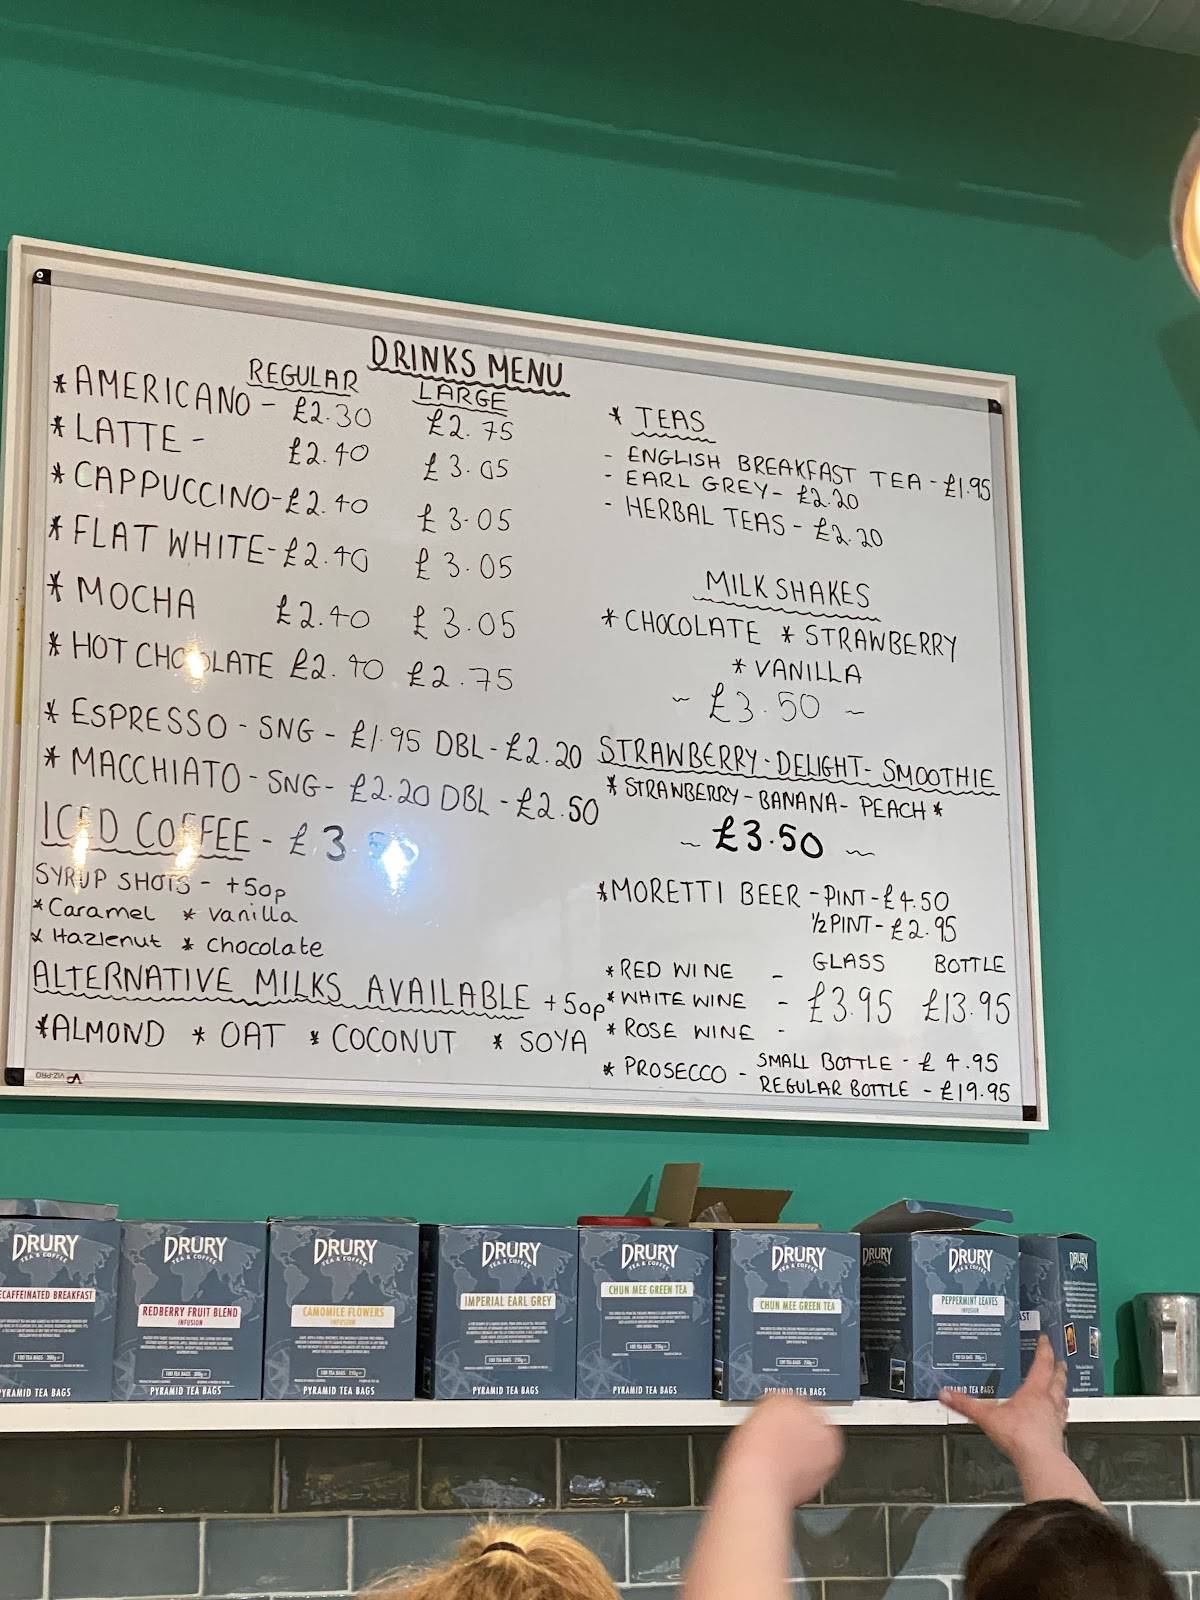 DRINKS MENU
REGULAR LARGE
*AMERICANO - £2.30 £2.75
*LATTE - £2.40 £3.05
*CAPPUCCINO - £2.40 £3.05
*FLAT WHITE - £2.40 £3.05
*MOCHA £2.40 £3.05
*HOT CHOCOLATE £2.40 £2.75
*ESPRESSO - SNG - £1.95 DBL - £2.20
*MACCHIATO - SNG - £2.20 DBL - £2.50
ICED COFFEE - £3
SYRUP SHOTS - +50p
*Caramel *vanilla
*Hazlenut *chocolate
ALTERNATIVE MILKS AVAILABLE +50p
*ALMOND *OAT *COCONUT *SOYA
* TEAS
- ENGLISH BREAKFAST TEA - £1.95
- EARL GREY - £2.20
- HERBAL TEAS - £2.20
MILKSHAKES
*CHOCOLATE *STRAWBERRY
*VANILLA
~ £3.50 ~
STRAWBERRY-DELIGHT-SMOOTHIE
*STRAWBERRY-BANANA-PEACH*
~ £3.50 ~
*MORETTI BEER - PINT - £4.50
½ PINT - £2.95
GLASS BOTTLE
*RED WINE -
*WHITE WINE - £3.95 £13.95
*ROSE WINE -
*PROSECCO - SMALL BOTTLE - £4.95
REGULAR BOTTLE - £19.95
VIZ-PRO
DRURY
TEA & COFFEE
ECAFFEINATED BREAKFAST
100 TEA BAGS
PYRAMID TEA BAGS
DRURY
TEA & COFFEE
REDBERRY FRUIT BLEND
INFUSION
100 TEA BAGS
PYRAMID TEA BAGS
DRURY
TEA & COFFEE
CAMOMILE FLOWERS
INFUSION
100 TEA BAGS
PYRAMID TEA BAGS
DRURY
TEA & COFFEE
IMPERIAL EARL GREY
100 TEA BAGS
PYRAMID TEA BAGS
DRURY
TEA & COFFEE
CHUN MEE GREEN TEA
100 TEA BAGS
PYRAMID TEA BAGS
DRURY
TEA & COFFEE
CHUN MEE GREEN TEA
100 TEA BAGS
PYRAMID TEA BAGS
DRURY
TEA & COFFEE
DRURY
TEA & COFFEE
PEPPERMINT LEAVES
INFUSION
PYRAMID TEA BAGS
AST
DRURY